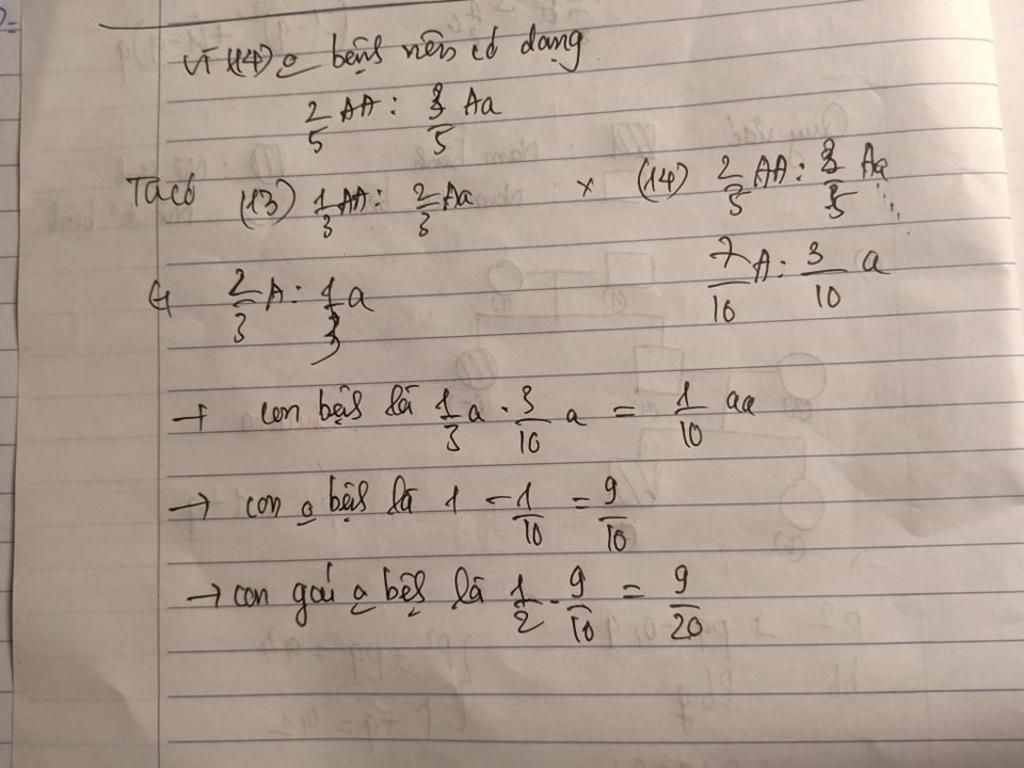 vì (14) o bệnh nên có dạng
2/5 AA : 3/5 Aa
Ta có (13) 1/3 AA : 2/3 Aa × (14) 2/5 AA : 3/5 Aa
G 2/3 A : 1/3 a 7/10 A : 3/10 a
→ con bệnh là 1/3 a . 3/10 a = 1/10 aa
→ con o bệnh là 1 - 1/10 = 9/10
→ con gái o bệnh là 1/2 . 9/10 = 9/20